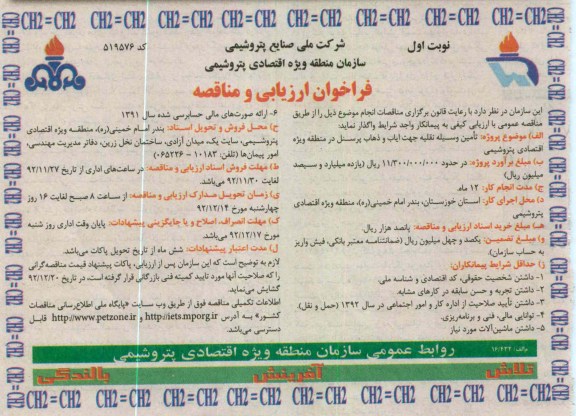 نوبت اول
شرکت ملی صنایع پتروشیمی
کد ۵۱۹۵۷۶
سازمان منطقه ویژه اقتصادی پتروشیمی
فراخوان ارزیابی و مناقصه
این سازمان در نظر دارد با رعایت قانون برگزاری مناقصات انجام موضوع ذیل را از طریق
مناقصه عمومی با ارزیابی کیفی به پیمانکار واجد شرایط واگذار نماید:
الف) موضوع پروژه: تأمین وسیله نقلیه جهت ایاب و ذهاب پرسنل در منطقه ویژه
اقتصادی پتروشیمی
ب) مبلغ برآورد پروژه: در حدود ۱۱/۳۰۰/۰۰۰/۰۰۰ ریال (یازده میلیارد و سیصد
میلیون ریال)
ج) مدت انجام کار: ۱۲ ماه.
د) محل اجرای کار: استان خوزستان، بندر امام خمینی(ره)، منطقه ویژه اقتصادی
پتروشیمی
هـ) مبلغ خرید اسناد ارزیابی و مناقصه: پانصد هزار ریال.
و) مبلغ تضمین: یکصد و چهل میلیون ریال (ضمانتنامه معتبر بانکی، فیش واریز
به حساب سازمان)
ز) حداقل شرایط پیمانکاران:
۱- داشتن شخصیت حقوقی، کد اقتصادی و شناسه ملی.
۲- داشتن تجربه و حسن سابقه در کارهای مشابه.
۳- داشتن تأیید صلاحیت از اداره کار و امور اجتماعی در سال ۱۳۹۲ (حمل و نقل).
۴- توانایی مالی، فنی و برنامه‌ریزی.
۵- داشتن ماشین‌آلات مورد نیاز
۶- ارائه صورت‌های مالی حسابرسی شده سال ۱۳۹۱
ح) محل فروش و تحویل اسناد: بندر امام خمینی(ره)، منطقه ویژه اقتصادی
پتروشیمی، سایت یک، میدان آزادی، ساختمان نخل زرین، دفاتر مدیریت مهندسی،
امور پیمان‌ها (تلفن: ۱۰۱۸۳ - ۰۶۵۲۲۶)
ط) مهلت فروش اسناد ارزیابی و مناقصه: در ساعت‌های اداری از تاریخ ۹۲/۱۱/۲۷
لغایت ۹۲/۱۱/۳۰ می‌باشد.
ی) زمان تحویل مدارک ارزیابی و مناقصه: از ساعت ۸ صبح لغایت ۱۶ روز
چهارشنبه مورخ ۹۲/۱۲/۱۴
ک) مهلت انصراف، اصلاح و یا جایگزینی پیشنهادات: پایان وقت اداری روز شنبه
مورخ ۹۲/۱۲/۱۷ می‌باشد.
ل) مدت اعتبار پیشنهادات: شش ماه از تاریخ تحویل پاکات می‌باشد.
لازم به توضیح است که این سازمان پس از ارزیابی، پاکات پیشنهاد قیمت مناقصه‌گرانی
را که صلاحیت آنها مورد تایید کمیته فنی بازرگانی قرار گرفته است، در تاریخ ۹۲/۱۲/۲۰
گشایش می‌نماید.
اطلاعات تکمیلی مناقصه فوق از طریق وب سایت «پایگاه ملی اطلاع‌رسانی مناقصات
کشور» به آدرس http://iets.mporg.ir و http://www.petzone.ir قابل
دسترسی می‌باشد.
روابط عمومی سازمان منطقه ویژه اقتصادی پتروشیمی
تلاش آفرینش بالندگی